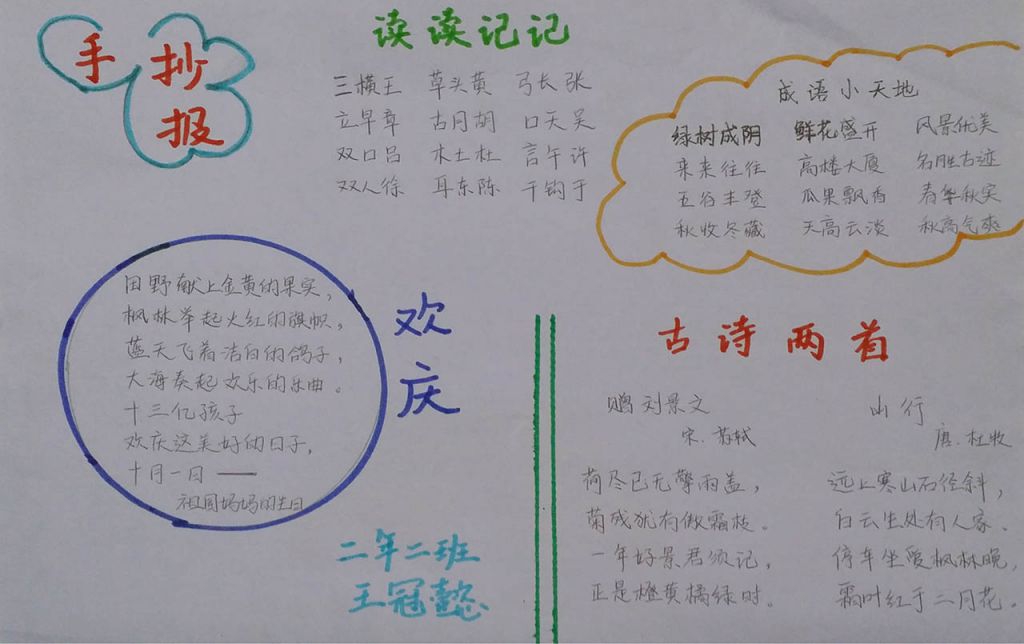 手抄报
读读记记
三横王 草头黄 弓长张
立早章 古月胡 口天吴
双口吕 木土杜 言午许
双人徐 耳东陈 干钩于
成语小天地
绿树成阴 鲜花盛开 风景优美
来来往往 高楼大厦 名胜古迹
五谷丰登 瓜果飘香 春华秋实
秋收冬藏 天高云淡 秋高气爽
田野献上金黄的果实,
枫林举起火红的旗帜,
蓝天飞着洁白的鸽子,
大海奏起欢乐的乐曲。
十三亿孩子
欢庆这美好的日子,
十月一日——
祖国妈妈的生日
欢庆
二年二班
王冠懿
古诗两首
赠刘景文
宋.苏轼
荷尽已无擎雨盖,
菊残犹有傲霜枝。
一年好景君须记,
正是橙黄橘绿时。
山行
唐.杜牧
远上寒山石径斜,
白云生处有人家。
停车坐爱枫林晚,
霜叶红于二月花。